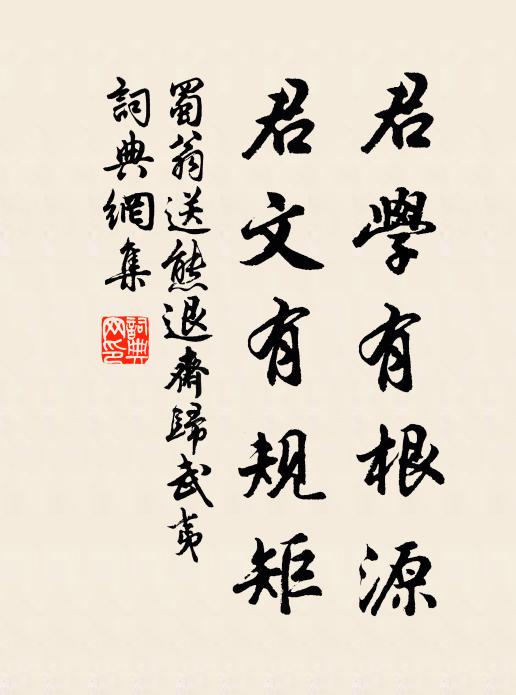 君學有根源
君文有規矩
蜀翁送熊退齋歸武夷
詞典網集
詞典网印